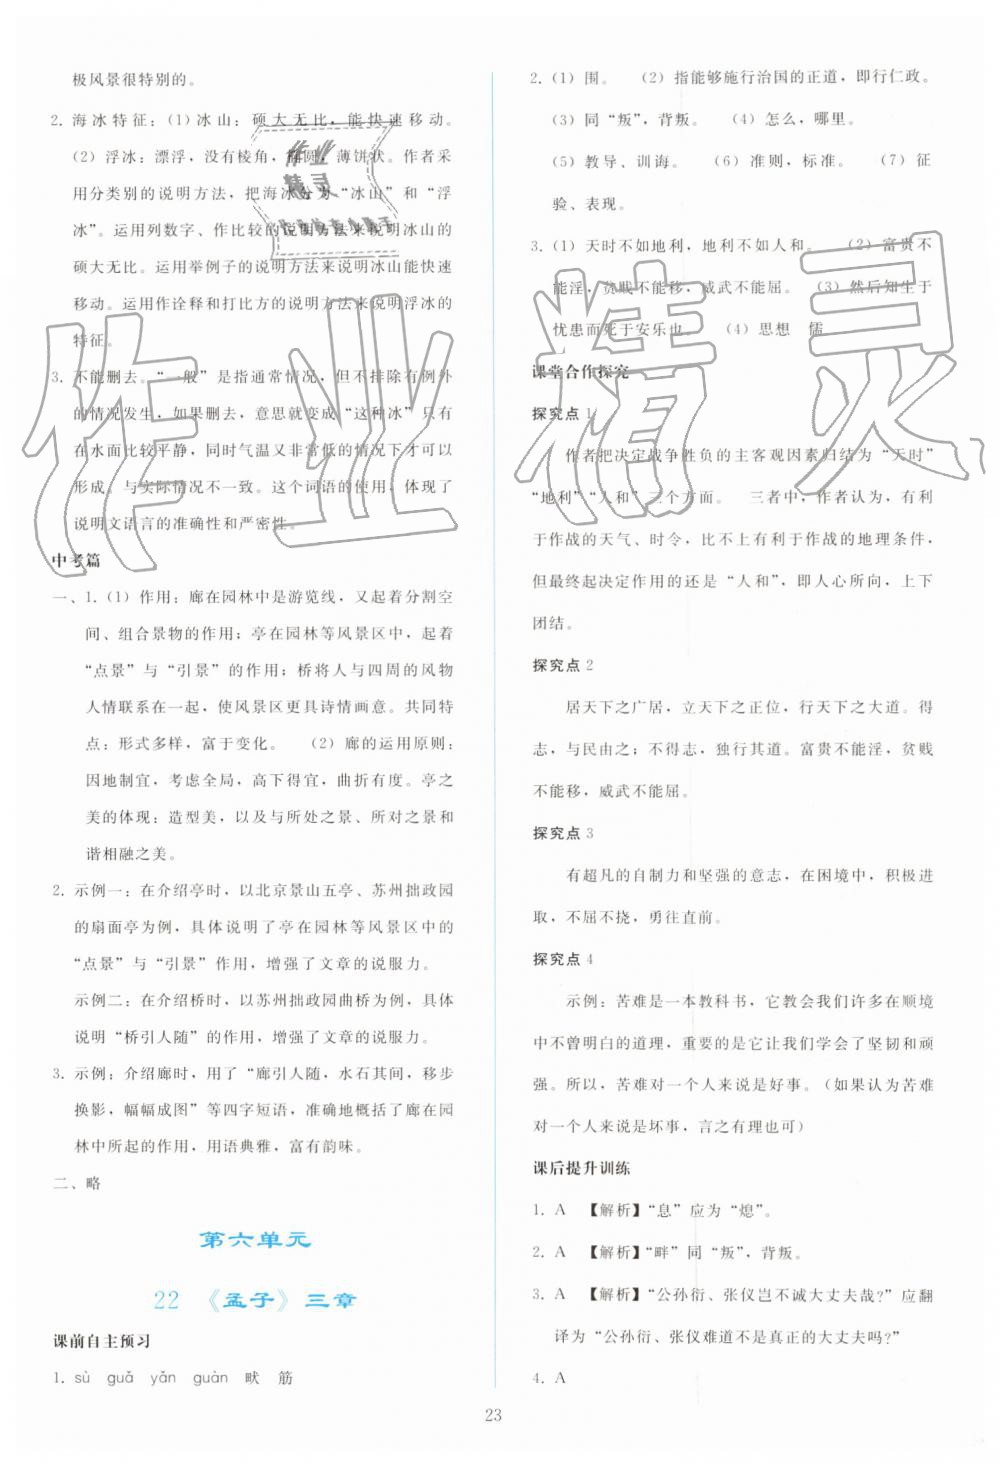 极风景很特别的。
2. 海冰特征：（1）冰山：硕大无比，能快速移动。
（2）浮冰：漂浮，没有棱角，椭圆，薄饼状。作者采
用分类别的说明方法，把海冰分为“冰山”和“浮
冰”。运用列数字、作比较的说明方法来说明冰山的
硕大无比。运用举例子的说明方法来说明冰山能快速
移动。运用作诠释和打比方的说明方法来说明浮冰的
特征。
3. 不能删去。“一般”是指通常情况，但不排除有例外
的情况发生，如果删去，意思就变成“这种冰”只有
在水面比较平静，同时气温又非常低的情况下才可以
形成。与实际情况不一致。这个词语的使用，体现了
说明文语言的准确性和严密性。
中考篇
一、1.（1）作用：廊在园林中是游览线，又起着分割空
间、组合景物的作用；亭在园林等风景区中，起着
“点景”与“引景”的作用；桥将人与四周的风物
人情联系在一起，使风景区更具诗情画意。共同特
点：形式多样，富于变化。　（2）廊的运用原则：
因地制宜，考虑全局，高下得宜，曲折有度。亭之
美的体现：造型美，以及与所处之景、所对之景和
谐相融之美。
2. 示例一：在介绍亭时，以北京景山五亭、苏州拙政园
的扇面亭为例，具体说明了亭在园林等风景区中的
“点景”与“引景”作用，增强了文章的说服力。
示例二：在介绍桥时，以苏州拙政园曲桥为例，具体
说明“桥引人随”的作用，增强了文章的说服力。
3. 示例：介绍廊时，用了“廊引人随，水石其间，移步
换影，幅幅成图”等四字短语，准确地概括了廊在园
林中所起的作用，用语典雅，富有韵味。
二、略
第六单元
22 《孟子》三章
课前自主预习
1. sù guǎ yǎn guàn 畎 筋
2.（1）围。　（2）指能够施行治国的正道，即行仁政。
（3）同“叛”，背叛。　（4）怎么，哪里。
（5）教导、训诲。　（6）准则，标准。　（7）征
验、表现。
3.（1）天时不如地利，地利不如人和。　（2）富贵不
能淫，贫贱不能移，威武不能屈。　（3）然后知生于
忧患而死于安乐也。　（4）思想　儒
课堂合作探究
探究点 1
作者把决定战争胜负的主客观因素归结为“天时”
“地利”“人和”三个方面。　三者中，作者认为，有利
于作战的天气、时令，比不上有利于作战的地理条件，
但最终起决定作用的还是“人和”，即人心所向，上下
团结。
探究点 2
居天下之广居，立天下之正位，行天下之大道。得
志，与民由之；不得志，独行其道。富贵不能淫，贫贱
不能移，威武不能屈。
探究点 3
有超凡的自制力和坚强的意志，在困境中，积极进
取，不屈不挠，勇往直前。
探究点 4
示例：苦难是一本教科书，它教会我们许多在顺境
中不曾明白的道理，重要的是它让我们学会了坚韧和顽
强。所以，苦难对一个人来说是好事。（如果认为苦难
对一个人来说是坏事，言之有理也可）
课后提升训练
1. A 【解析】“息”应为“熄”。
2. A 【解析】“畔”同“叛”，背叛。
3. A 【解析】“公孙衍、张仪岂不诚大丈夫哉?”应翻
译为“公孙衍、张仪难道不是真正的大丈夫吗?”
4. A
23
作业精灵
作业
精灵